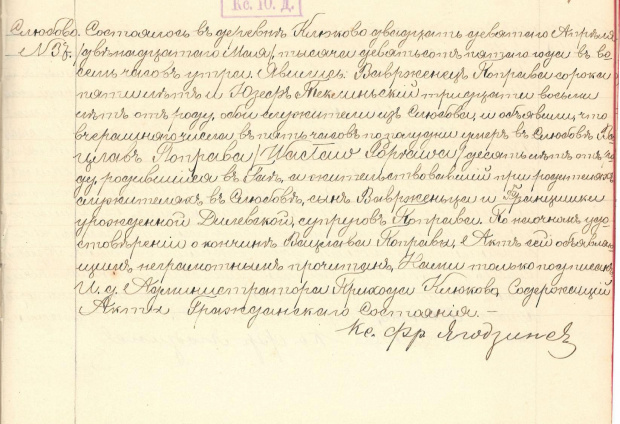 Кс. Ю. Д.
Слюбово. Состоялось въ деревнѣ Клюково двадцать девятаго Апрѣля
№ 37. /двѣнадцатаго Мая/ тысяча девятьсотъ пятаго года въ во-
семь часовъ утра. Явились: Вавржинецъ Поправа сорока
пяти лѣтъ и Юзефъ Теклиньскій тридцати восьми
лѣтъ отъ роду, оба служители изъ Слюбова, и объявили, что
вчерашняго числа въ пять часовъ пополудни умеръ въ Слюбовѣ Ва-
цлавъ Поправа /Wacław Poprawa/ десять лѣтъ отъ ро-
ду, родившійся въ а жительствовавшій при родителяхъ
служителяхъ въ Слюбовѣ, сынъ Вавржинца и Францишки
урожденной Дилевской, супруговъ Поправа. По наочномъ удо-
стовѣреніи о кончинѣ Вацлава Поправы, Актъ сей объявляю-
щимъ неграмотнымъ прочитанъ, Нами только подписанъ.
И. д. Администратора Прихода Клюково, Содержащій
Акты Гражданскаго Состоянія. —
Кс. Фр Ягодзинск